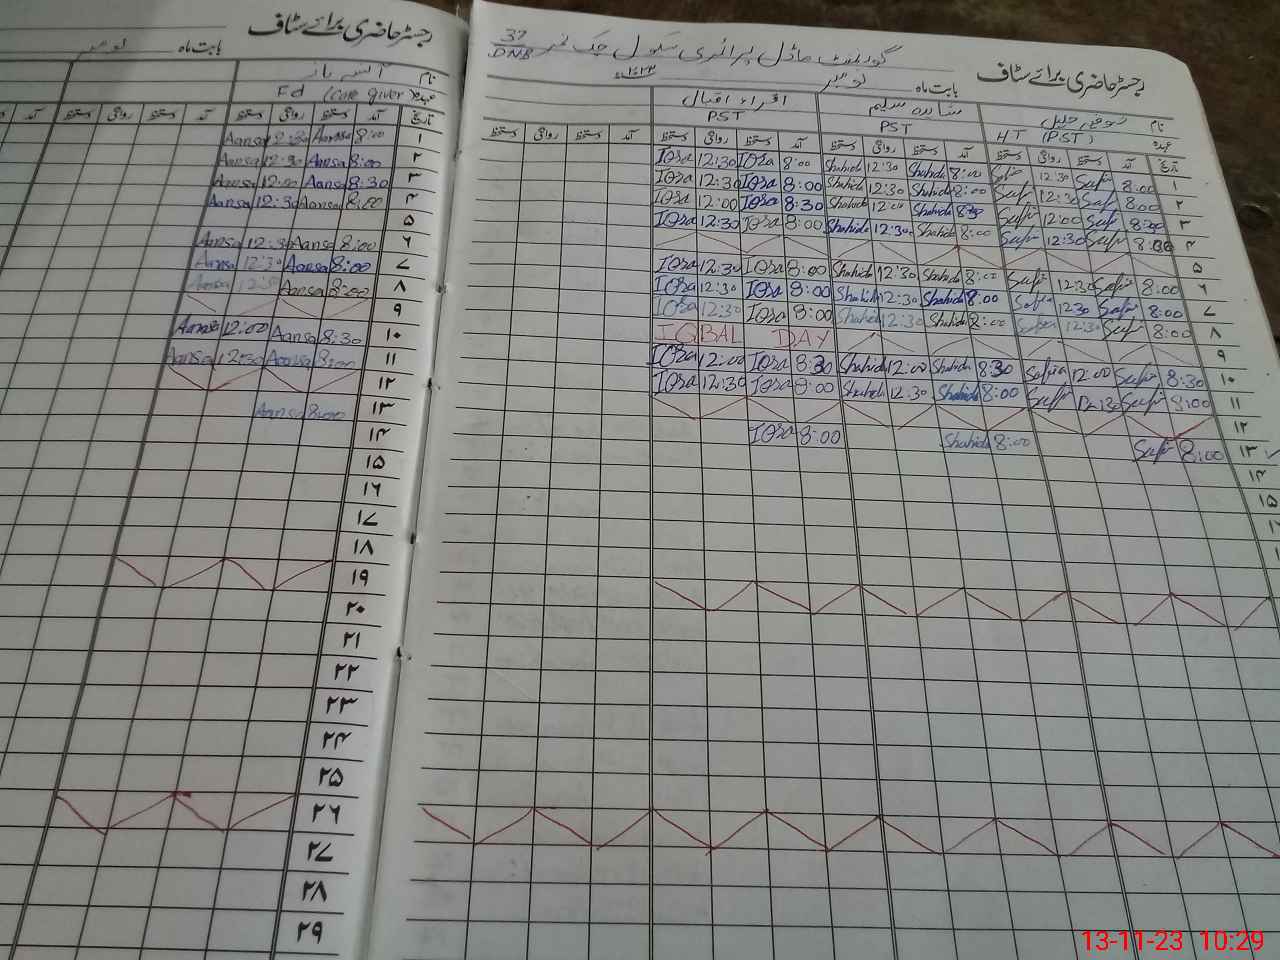 رجسٹر حاضری برائے سٹاف
گورنمنٹ ماڈل پرائمری سکول چک نمبر 37 DNB
بابت ماہ نومبر
نام شاہدہ سلیم اقراء اقبال
عہدہ HT (PST) PST PST
تاریخ آمد دستخط روانگی دستخط آمد دستخط روانگی دستخط آمد دستخط روانگی دستخط آمد دستخط روانگی دستخط
۱ 8:00 12:30 Shahida 8:00 Shahida 12:30 Iqra 8:00 Iqra 12:30
۲ 8:00 12:30 Shahida 8:00 Shahida 12:30 Iqra 8:00 Iqra 12:30
۳ 8:30 12:00 Shahida 8:30 Shahida 12:00 Iqra 8:30 Iqra 12:00
۴ 12:30 Shahida 8:00 Shahida 12:30 Iqra 8:00 Iqra 12:30
۵
۶ 8:00 12:30 Shahida 8:00 Shahida 12:30 Iqra 8:00 Iqra 12:30
۷ 8:00 12:30 Shahida 8:00 Shahida 12:30 Iqra 8:00 Iqra 12:30
۸ 8:00 12:30 Shahida 8:00 Shahida 12:30 Iqra 8:00 Iqra 12:30
۹ IQBAL DAY
۱۰ 8:30 Safia 12:00 Shahida 8:30 Shahida 12:00 Iqra 8:30 Iqra 12:00
۱۱ 8:00 12:30 Shahida 8:00 Shahida 12:30 Iqra 8:00 Iqra 12:30
۱۲
۱۳ 8:00 Shahida 8:00 Iqra 8:00
۱۴
۱۵
رجسٹر حاضری برائے سٹاف
بابت ماہ نومبر
نام
عہدہ (care giver)
تاریخ آمد دستخط روانگی دستخط آمد دستخط روانگی دستخط آمد
۱ 8:00 Aansa 12:30 Aansa
۲ 8:00 Aansa 12:30 Aansa
۳ 8:30 Aansa 12:00 Aansa
۴ 8:00 Aansa 12:30 Aansa
۵
۶ 8:00 Aansa 12:30 Aansa
۷ 8:00 Aansa 12:30 Aansa
۸ 8:00 Aansa 12:30 Aansa
۹
۱۰ 8:30 Aansa 12:00 Aansa
۱۱ 8:00 Aansa 12:30 Aansa
۱۲
۱۳ 8:00 Aansa
۱۴
۱۵
۱۶
۱۷
۱۸
۱۹
۲۰
۲۱
۲۲
۲۳
۲۴
۲۵
۲۶
۲۷
۲۸
۲۹
13-11-23 10:29